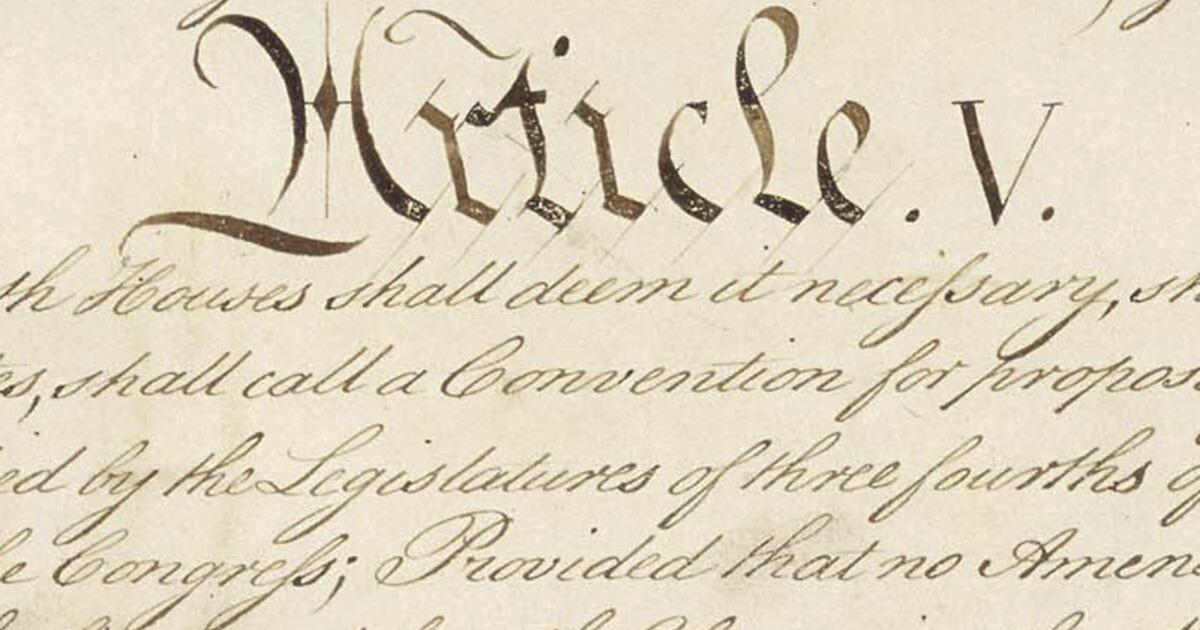 Article. V.
th Houses shall deem it neceſsary, sh
es, shall call a Convention for propos
ed by the Legislatures of three fourths of
e Congreſs; Provided that no Amen